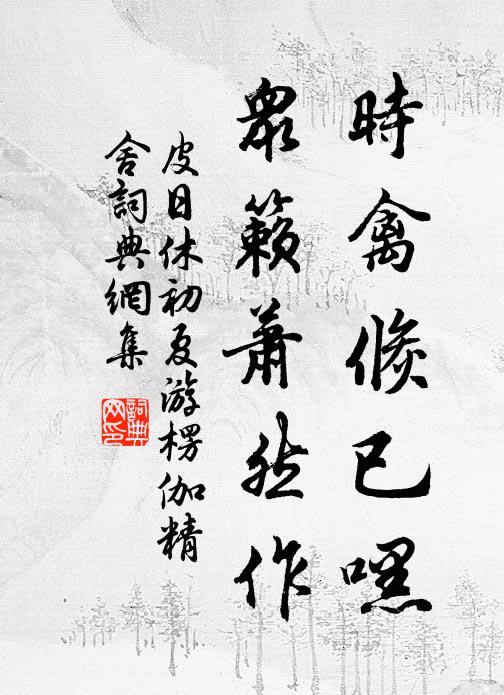 時禽倏已嘿
眾籟蕭然作
皮日休初夏游楞伽精
舍詞典網集
詞典
网印